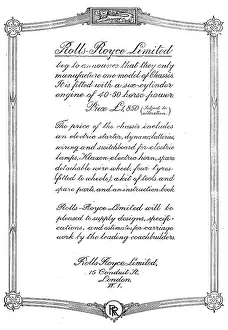 Rolls-Royce Limited
beg to announce that they only
manufacture one model of Chassis
It is fitted with a six-cylinder
engine of 40-50 horse power
Price £1,850 (Subject to
alteration.)
The price of the chassis includes
an electric starter, dynamo, batteries,
wiring and switchboard for electric
lamps, Klaxon electric horn, spare
detachable wire wheel, four tyres
(fitted to wheels), a kit of tools and
spare parts, and an instruction book
Rolls-Royce Limited will be
pleased to supply designs, specifi-
cations, and estimates for carriage
work by the leading coachbuilders
Rolls-Royce Limited,
15 Conduit St,
London,
W. 1.
RR